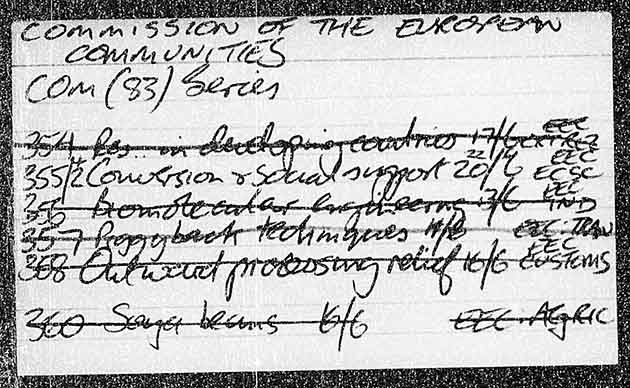 COMMISSION OF THE EUROPEAN
COMMUNITIES
COM (83) Series
354 Res... in developing countries 17/6 EEC EXT REZ
355/2 Conversion & Social support 20/6 22 EEC ECSC
356 Biomolecular engineering 17/6 EEC IND
357 Piggyback techniques EEC TRAN
358 Outward processing relief 16/6 EEC CUSTOMS
360 Soya beans 16/6 EEC AGRIC